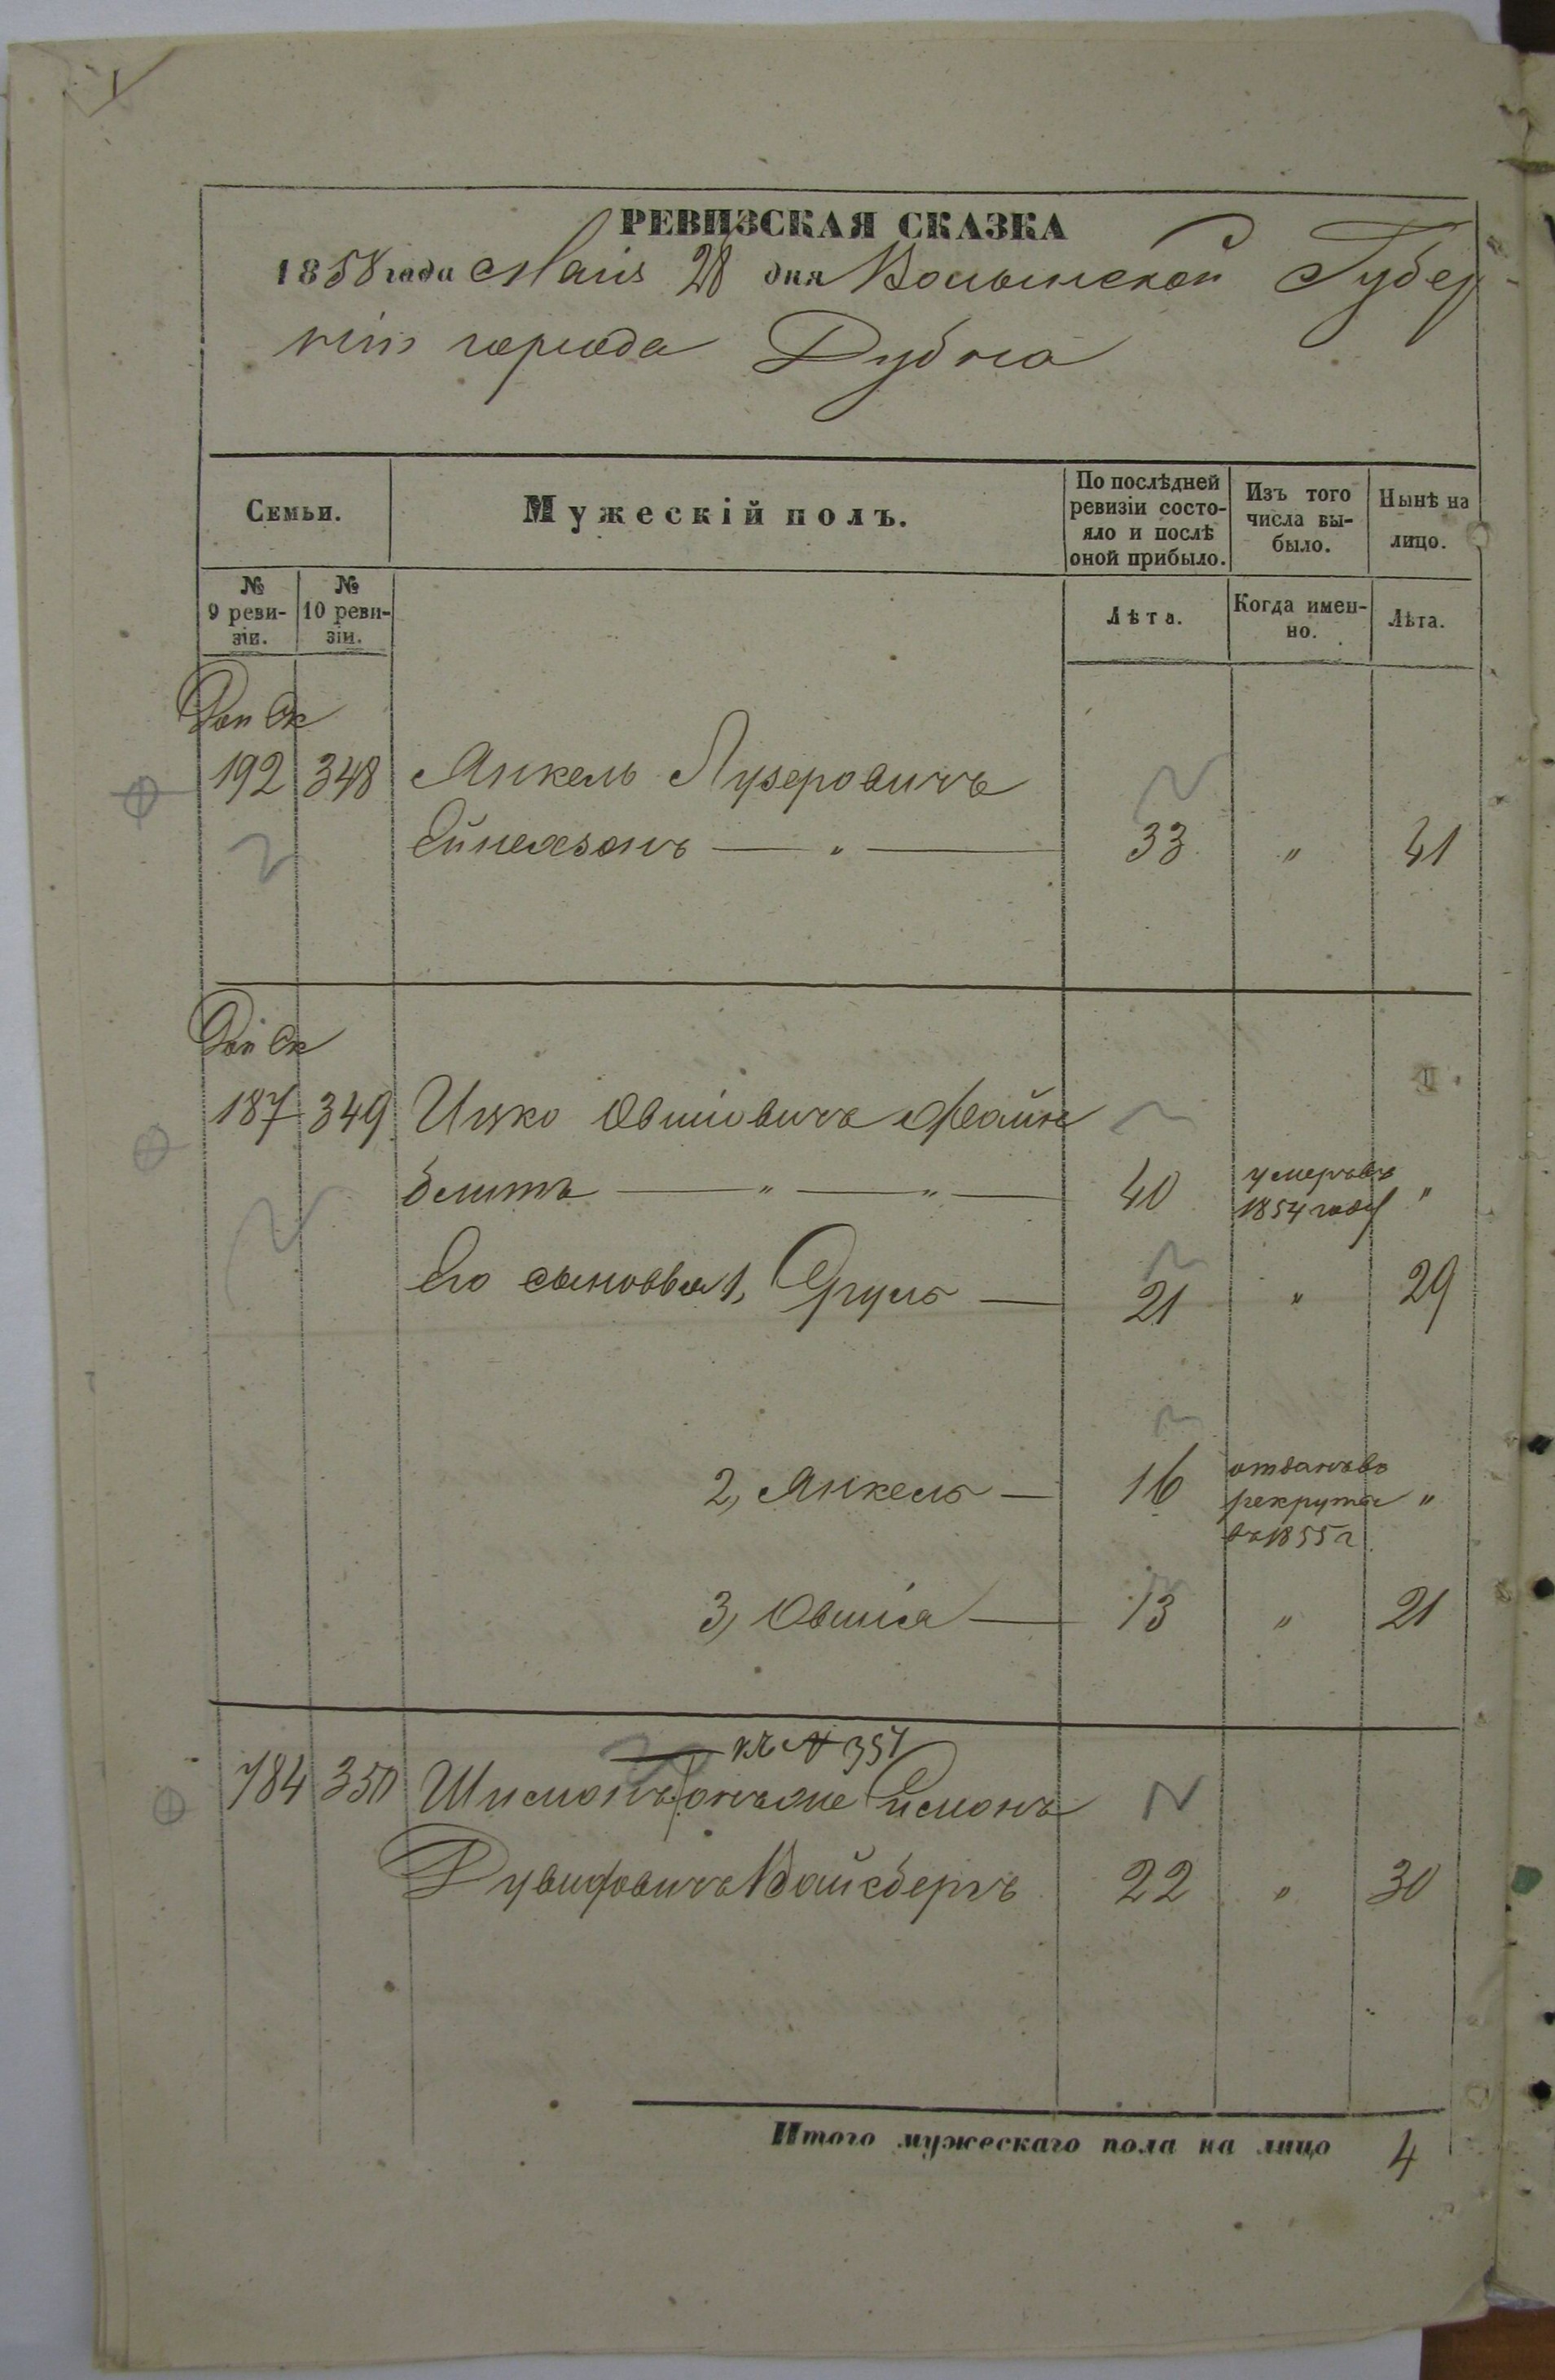 РЕВИЗСКАЯ СКАЗКА
1858 года Маія 28 дня Волынской Губер-
ніи города Дубна
Семьи.
Мужескій полъ.
По послѣдней ревизіи состо-
яло и послѣ оной прибыло.
Изъ того числа вы-
было.
Нынѣ на лицо.
№ 9 реви-
зіи.
№ 10 реви-
зіи.
Лѣта.
Когда имен-
но.
Лѣта.
Доп Ск
192 348 Янкель Лузеровичъ
33 " 41
Доп Ск
187 349 Ицко Овшіовичъ Файн
блитъ — " — " — 40 умеръ въ 1854 году "
Его сыновья 1, Сруль — 21 " 29
2, Янкель — 16 отданъ въ рекруты въ 1855 г "
3, Овшія — 13 " 21
къ № 351
784 350 Шимонъ онъ же Симонъ
Дувидовичъ Вайсбергъ 22 " 30
Итого мужескаго пола на лицо 4